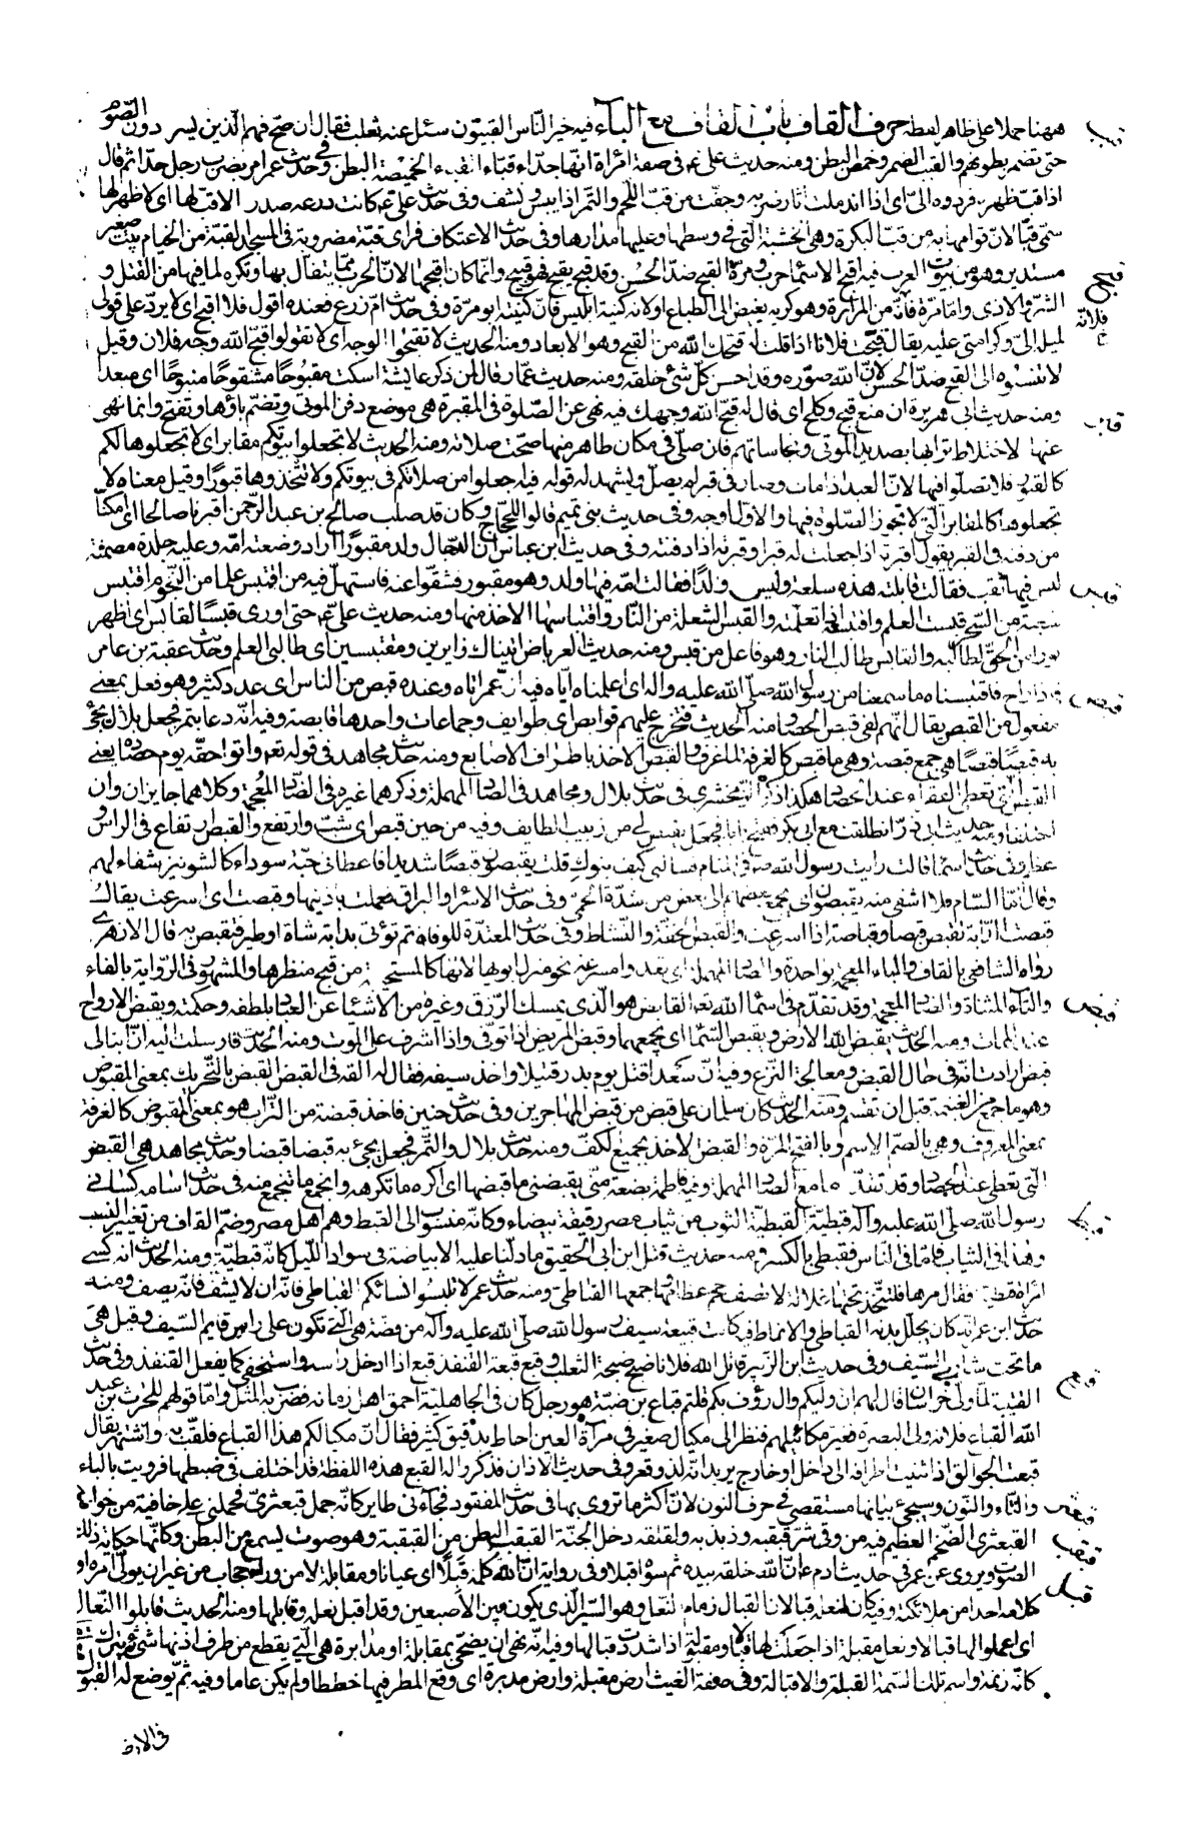 ههنا حملا على ظاهر لفظه حرف القاف باب القاف مع الباء فيه خير الناس القبيّون سئل عنه ثعلب فقال ان صحّ فهم الّذين يسردون الصّوم
حتى تضمر بطونهم والقبب الضمر وخمص البطن ومنه حديث علىّ ع فى صفة امرأة انها جدّاء قبّاء القبّاء الخميصة البطن وفى حديث عمر امر بضرب رجل حدّا ثم قال
اذا قبّ ظهره فردوه الىّ اى اذا اندملت اثار ضربه وجفّت من قبّ اللحم والتمر اذا يبس ونشف وفى حديث علىّ ع كانت درعه صدر الا قبّ لها اى لا ظهر لها
سمّى قبّا لانّ قوامها به من قبّ البكرة وهى الخشبة التى فى وسطها وعليها مدارها وفى حديث الاعتكاف فراى قبّة مضروبة فى المسجد القبّة من الخيام بيت صغير
مستدير وهو من بيوت العرب فيه اقبح الاسماء حرب ومرّة القبح ضدّ الحسن وقد قبح يقبح فهو قبيح وانّما كان اقبحها لانّ الحرب ممّا يتفاءل بها وتكره لما فيها من القتل و
الشرّ والاذى وامّا مرّة فلانّه من المرارة وهو كريه بغيض الى الطباع او لانه كنية ابليس فانّ كنيته ابو مرّة وفى حديث امّ زرع فعنده اقول فلا اقبح اى لا يردّ علىّ قولى
لميله الىّ وكرامتى عليه يقال قبّحت فلانا اذا قلت له قبحك الله من القبح وهو الابعاد ومنه الحديث لا تقبحوا الوجه اى لا تقولوا قبح الله وجه فلان وقيل
لا تنسبوه الى القبح ضدّ الحسن لانّ الله صوّره وقد احسن كلّ شئ خلقه ومنه حديث عمّار قال لمن ذكر عايشة اسكت مقبوحا مشقوحا منبوحا اى مبعدا
ومنه حديث ابى هريرة ان منع قبح وكلح اى قال له قبح الله وجهك فيه نهى عن الصّلوة فى المقبرة هى موضع دفن الموتى وتضمّ باؤها وتفتح وانما نهى
عنها لاختلاط ترابها بصديد الموتى ونجاساتهم فان صلّى فى مكان طاهر منها صحّت صلاته ومنه الحديث لا تجعلوا بيوتكم مقابر اى لا تجعلوها لكم
كالقبور فلا تصلّوا فيها لانّ العبد اذا مات وصار فى قبره لم يصلّ ويشهد له قوله فيه اجعلوا من صلاتكم فى بيوتكم ولا تتخذوها قبورا وقيل معناه لا
تجعلوها كالمقابر التى لا تجوز الصّلوة فيها والاوّل اوجه وفى حديث بنى تميم قالوا للحجّاج وكان قد صلب صالح بن عبد الرّحمن اقبرنا صالحا اى امكنّا
من دفنه فى القبر يقول اقبرته اذا جعلت له قبرا وقبرته اذا دفنته وفى حديث ابن عباس انّ الدجّال ولد مقبورا اراد وضعته امّه وعليه جلدة مصمتة
ليس فيها ثقب فقالت قابلته هذه سلعة وليس ولدا فقالت امّه فيها ولد وهو مقبور فشقّوا عنه فاستهلّ فيه من اقتبس علما من النّجوم اقتبس
شعبة من السّحر قبست العلم واقتبسته اذا تعلّمته والقبس الشعلة من النّار واقتباسها الاخذ منها ومنه حديث علىّ ع حتى اورى قبسا لقابس اى اظهر
نورا من الحقّ لطالبه والقابس طالب النار وهو فاعل من قبس ومنه حديث العرباض اتيناك زايرين ومقتبسين اى طالبى العلم وحديث عقبة بن عامر
فاذا راح اقبسناه ما سمعنا من رسول الله صلّى الله عليه واله اى اعلمناه ايّاه فيه انّ عمر اتاه وعنده قبص من الناس اى عدد كثير وهو فعل بمعنى
مفعول من القبص يقال انّهم لفى قبص الحصا ومنه الحديث فتخرج عليهم قوابص اى طوايف وجماعات واحدها قابصة وفيه انّه دعا بتمر فجعل بلال يجئ
به قبصا قبصا هى جمع قبصة وهى ما قبص كالغرفة لما غرف والقبص الاخذ باطراف الاصابع ومنه حديث مجاهد فى قوله تع واتوا حقّه يوم حصاده يعنى
القبص التى تعطى الفقراء عند الحصاد هكذا ذكر الزّمخشرى فى حديث بلال ومجاهد فى الصّاد المهملة وذكرهما غيره فى الضّاد المعجمة وكلاهما جايزان وان
اختلفا ومنه حديث ابى ذرّ انطلقت مع ابى بكر ففتح بابا فجعل يقبص لى من زبيب الطايف وفيه من حين قبص اى شبّ وارتفع والقبص ارتفاع فى الراس و
عظم وفى حديث اسماء قالت رايت رسول الله ص فى المنام فسالنى كيف بنوك قلت يقبصون قبصا شديدا فاعطانى حبّة سوداء كالشونيز شفاء لهم
وقال امّا السّام فلا اشفى منه يقبصون اى يجمع بعضهم الى بعض من شدّة الحمّى وفى حديث الاسراء والبراق فعملت باذنيها وقبصت اى اسرعت يقال
قبصت الدّابّة تقبص قبصا وقباصة اذا اسرعت والقبص الخفّة والنّشاط وفى حديث المعتدّة للوفاة ثم تؤتى بدابة شاة او طير فتقبص به قال الازهرى
رواه الشافعى بالقاف والباء المعجمة بواحدة والصّاد المهملة اى تعدو مسرعة نحو منزل ابويها لانها كالمستحيية من قبح منظرها والمشهور فى الرّواية بالفاء
والتاء المثناة والضّاد المعجمة وقد تقدّم فى اسماء الله تع القابض هو الّذى يمسك الرّزق وغيره من الاشياء عن العباد بلطفه وحكمته ويقبض الارواح
عند الممات ومنه الحديث يقبض الله الارض ويقبض السّماء اى يجمعهما وقبض المريض اذا توفّى واذا اشرف على الموت ومنه الحديث فارسلت اليه انّ ابنا لى
قبض ارادت انّه فى حال القبض ومعالجة النّزع وفيه انّ سعدا قتل يوم بدر قتيلا واخذ سيفه فقال له القه فى القبض القبض بالتّحريك بمعنى المقبوض
وهو ما جمع من الغنيمة قبل ان تقسم ومنه الحديث كان سلمان على قبض من قبض المهاجرين وفى حديث حنين فاخذ قبضة من التّراب هو بمعنى المقبوض كالغرفة
بمعنى المغروف وهى بالضّم الاسم وبالفتح المرّة والقبض الاخذ بجميع الكفّ ومنه حديث بلال والتّمر فجعل يجئ به قبضا قبضا وحديث مجاهد هى القبض
التى تعطى عند الحصاد وقد تقدّم مع الصّاد المهملة وفيه فاطمة بضعة منّى يقبضنى ما قبضها اى اكره ما تكرهه وانجمع مما تنجمع منه فى حديث اسامة كسانى
رسول الله صلّى الله عليه وآله قبطيّة القبطيّة الثوب من ثياب مصر رقيقة بيضاء وكانّه منسوب الى القبط وهم اهل مصر وضمّ القاف من تغيير النسب
وهذا فى الثياب فامّا فى النّاس فقبطى بالكسر ومنه حديث قتل ابن ابى الحقيق ما دلّنا عليه الا بياضه فى سواد اللّيل كانّه قبطيّة ومنه الحديث انه كسى
امراة قبطيّة فقال مرها فلتتّخذ تحتها غلالة لا تصف حجم عظامها وجمعها القباطىّ ومنه حديث عمر لا تلبسوا نسائكم القباطىّ فانّه ان لا يشفّ فانّه يصف ومنه
حديث ابن عمر انّه كان يجلّل بدنه القباطى والانماط فيه كانت قبيعة سيف رسول الله صلّى الله عليه وآله من فضة هى التى تكون على راس قايم السّيف وقيل هى
ما تحت شاربى السّيف وفى حديث ابن الزّبير قاتل الله فلانا ضبح ضبحة الثعلب وقبع قبعة القنفذ قبع اذا ادخل راسه واستخفى كما يفعل القنفذ وفى حديث
القتيبة لمّا ولى خراسان قال لهم ان وليكم وال رؤف بكم قلتم قباع بن ضبّة هو رجل كان فى الجاهلية احمق اهل زمانه فضرب به المثل وامّا قولهم للحرث بن عبد
الله القباع فلانّه ولى البصرة فغيّر مكائيلهم فنظر الى مكيال صغير فى مرآة العين احاط بدقيق كثير فقال انّ مكيالكم هذا القباع فلقّب به واشتهر يقال
قبعت الجوالق اذا ثنيت اطرافه الى داخل او خارج يريد انّه لذو قعر وفى حديث الاذان فذكروا له القبع هذه اللفظة قد اختلف فى ضبطها فرويت بالباء
والثاء والنّون وسيجئ بيانها مستقصى فى حرف النون لانّ اكثر ما تروى بها فى حديث المفقود فجاءنى طاير كانّه جمل قبعثرىّ فحملنى على خافية من خوافيه
القبعثرى الضّخم العظيم فيه من وقى شرّ قبقبه وذبذبه ولقلقه دخل الجنّة القبقب البطن من القبقبة وهو صوت يسمع من البطن وكانّها حكاية ذلك
الصّوت ويروى عن عمر فى حديث ادم ع انّ الله خلقه بيده ثم سوّاه قبلا وفى رواية انّ الله كلّمه قبلا اى عيانا ومقابلة لا من وراء حجاب من غير ان يولّى امره او
كلامه احدا من ملائكته وفيه كان لنعله قبالان القبال زمام النّعل وهو السّير الّذى يكون بين الاصبعين وقد اقبل نعله وقابلها ومنه الحديث قابلوا النّعال
اى اعملوا لها قبالا ونعل مقبلة اذا جعلت لها قبالا ومقبولة اذا شددت قبالها وفيه انّه نهى ان يضحّى بمقابلة او مدابرة هى التى يقطع من طرف اذنها شئ ثم يترك
كانّه زنمة واسم تلك السّمة القبلة والاقبالة وفى صفة الغيث ارض مقبلة وارض مدبرة اى وقع المطر فيها خططا ولم يكن عاما وفيه ثمّ يوضع له القبول
فى الارض
قبب
قبح
فلانّه
قبر
قبس
قبص
قبض
قبط
قبع
قبعثر
قبقب
قبل